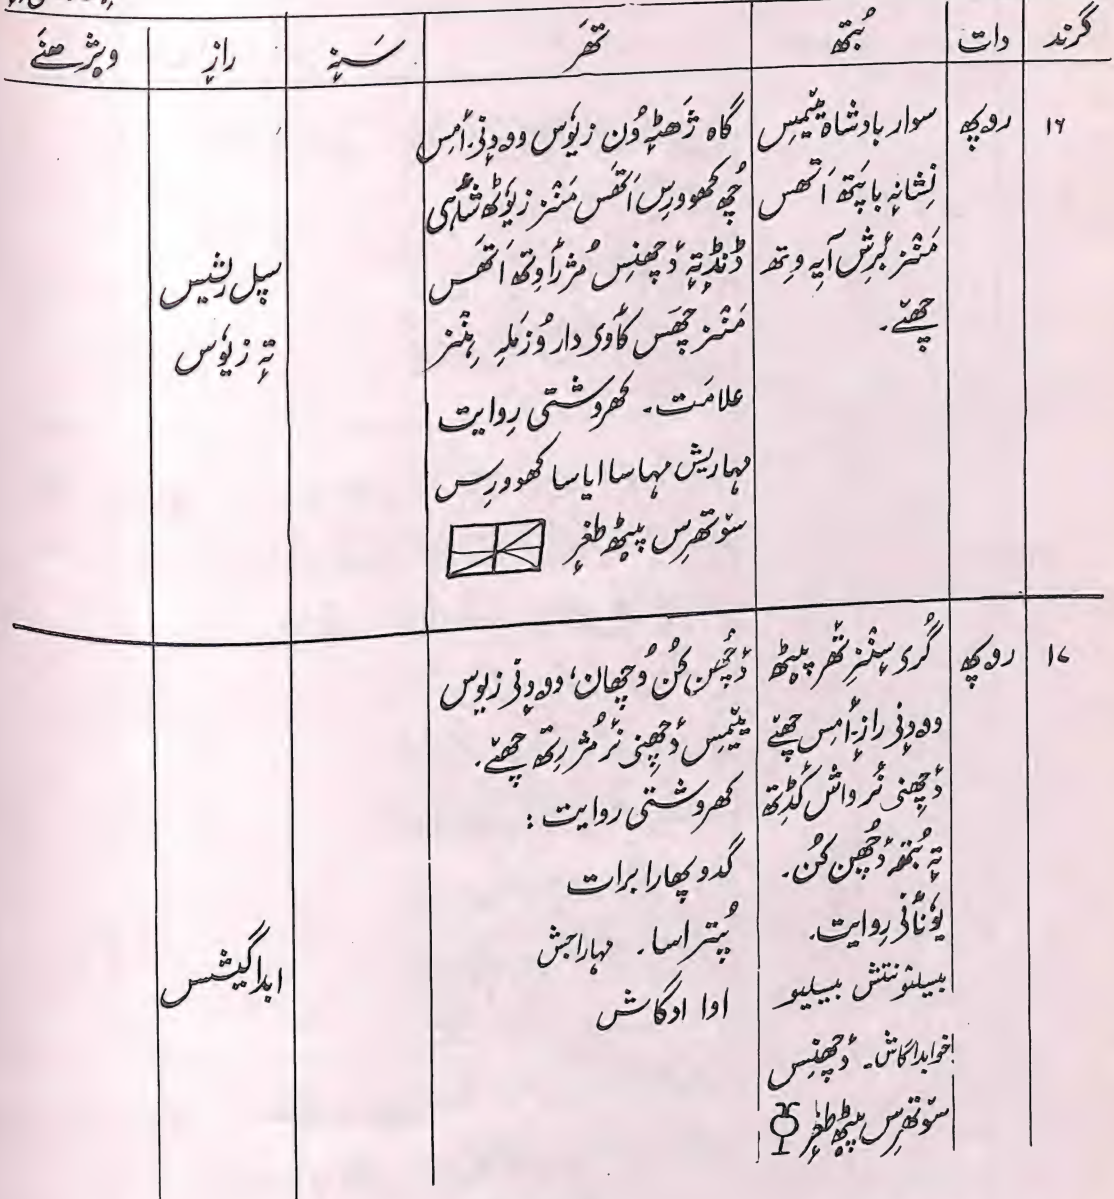 گرند دات بُتھ تھَر سَنہٕ رازٕ ویژھنَے
۱۶ روپھ
سوار بادشاہ یٔمِس
نِشانہٕ باپَتھ اَتھس
مَنٛز بُرش آیہِ وِتھ
چھنے۔
گاہ ژھٹہٕ وُن زیوٗس وودٕنی۔ اَمِس
چُھ کھووٕرِس اَتھَس مَنٛز زیوٗٹھ شٲہی
ڈنڈٕ تہٕ دٔچھنِس مُژرٲوِتھ اَتھَس
مَنٛز چھَس کٲوی دار وُزمَلہِ ہِنٛز
علامَت۔ کھروشتی رِوایت
مہاریش مہاسا ایاسا کھووٕرِس
سۆتھرِس پیٚٹھ طغرٕ
سپل رشیس
تہٕ زیوٗس
۱۷ روپھ
گُرۍ سٕنٛزِ تھٔر پیٚٹھ
وودٕنی رازٕ۔ اَمِس چھنے
دٔچھِنۍ نٔر واش کٔڈِتھ
تہٕ بُتھ دٔچھُن کُن۔
یوٗنٲنی رِوایت۔
بیسلئونتش بیسلیو
اخوابداگاش۔ دٔچھنِس
سۆتھرِس پیٚٹھ طغرٕ
دٔچھُن کُن وُچھان، وودٕنی زیوٗس
یٔمِس دٔچھِنی نٔر مُژرِتھ چھنے۔
کھروشتی روایت :
گدو پھارا برات
پُتراسا۔ مہاراجش
اوا ادگاش
ابداگیشس